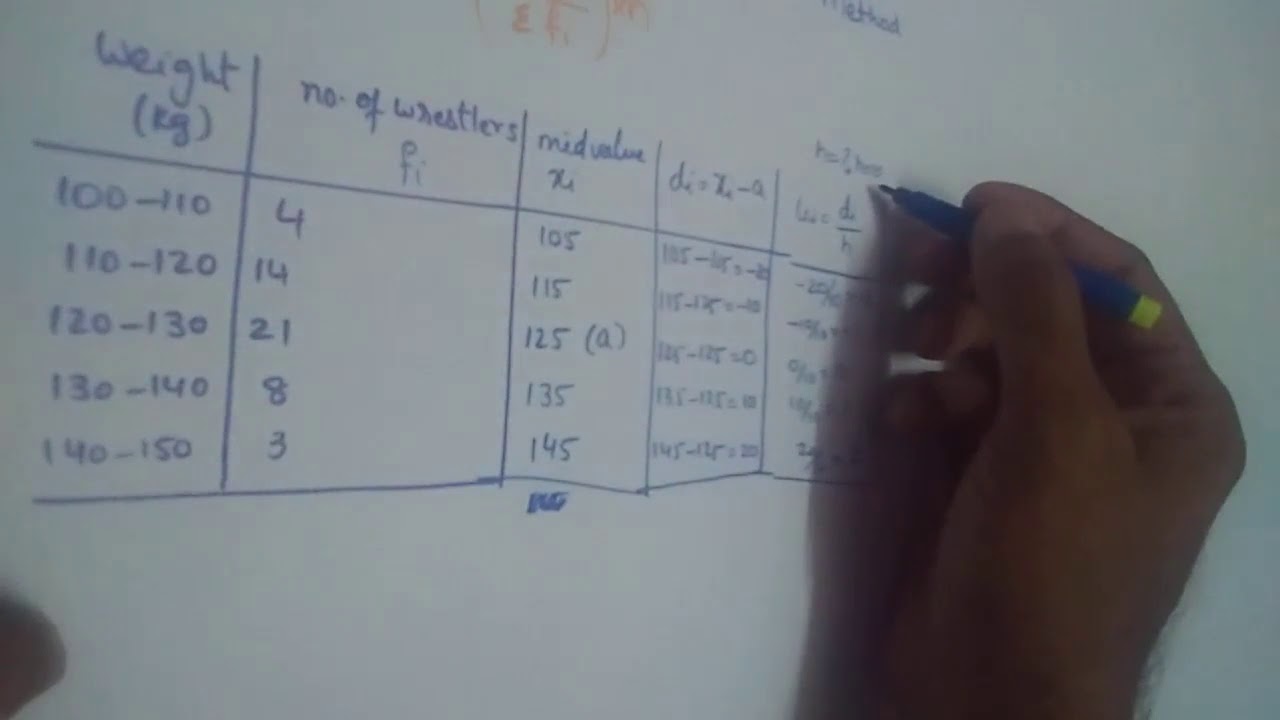 Σ fi
method
weight (kg) | no. of wrestlers fi | midvalue xi | di = xi - a | ui = di/h
h = ?
100-110 | 4 | 105 | 105-125=-20 | -20/10
110-120 | 14 | 115 | 115-125=-10 | -10/10
120-130 | 21 | 125 (a) | 125-125=0 | 0/10
130-140 | 8 | 135 | 135-125=10 | 10/10
140-150 | 3 | 145 | 145-125=20